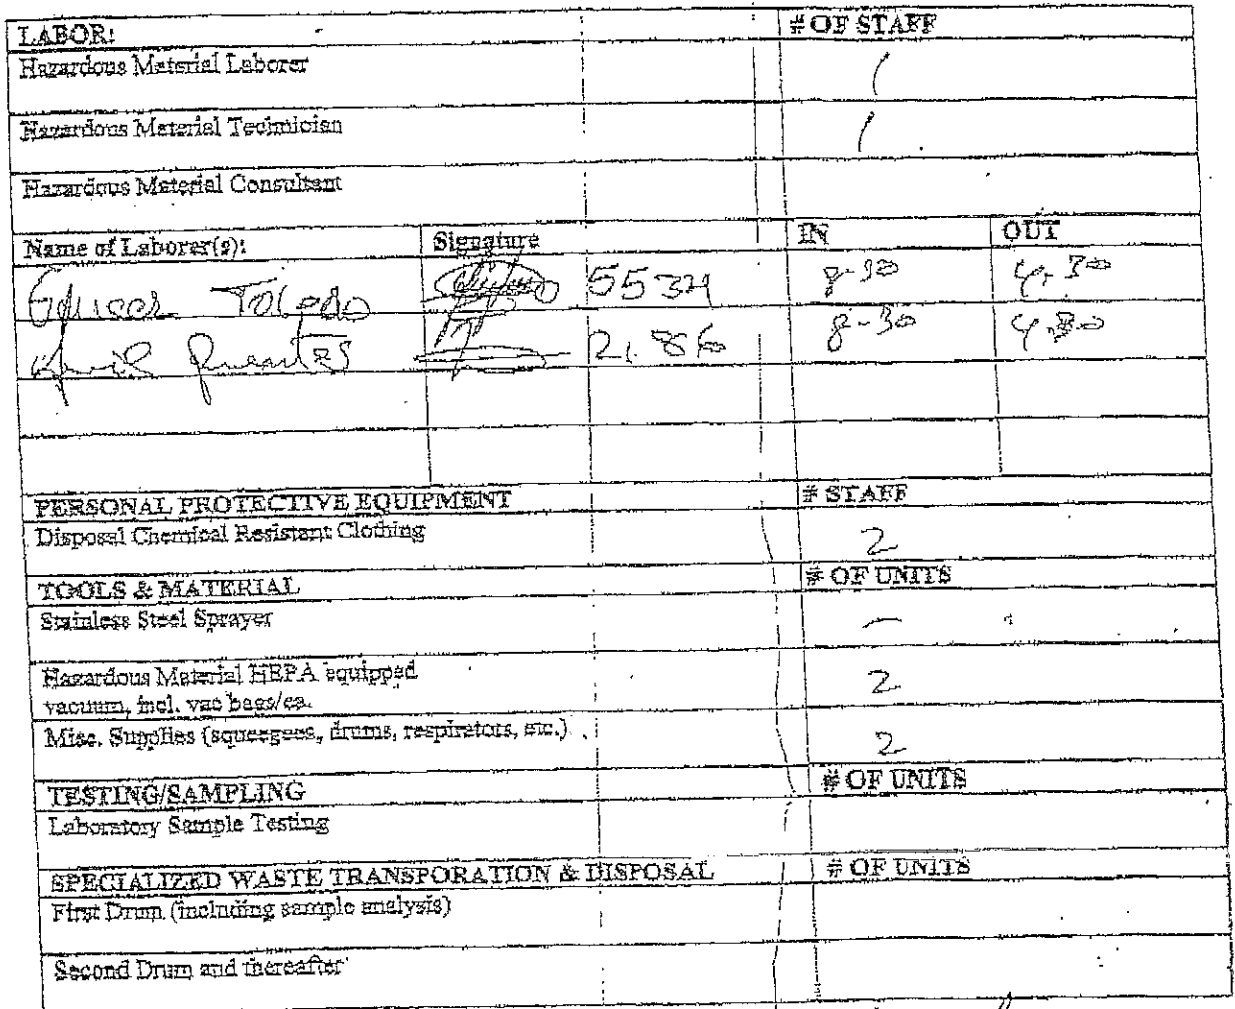 LABOR: # OF STAFF
Hazardous Material Laborer 1
Hazardous Material Technician 1
Hazardous Material Consultant
Name of Laborer(s): Signature IN OUT
Toledo 5534 8-30 4-30
8-30 4-30
PERSONAL PROTECTIVE EQUIPMENT # STAFF
Disposal Chemical Resistant Clothing 2
TOOLS & MATERIAL # OF UNITS
Stainless Steel Sprayer —
Hazardous Material HEPA equipped
vacuum, incl. vac bags/ea. 2
Misc. Supplies (squeegees, drums, respirators, etc.) 2
TESTING/SAMPLING # OF UNITS
Laboratory Sample Testing
SPECIALIZED WASTE TRANSPORATION & DISPOSAL # OF UNITS
First Drum (including sample analysis)
Second Drum and thereafter